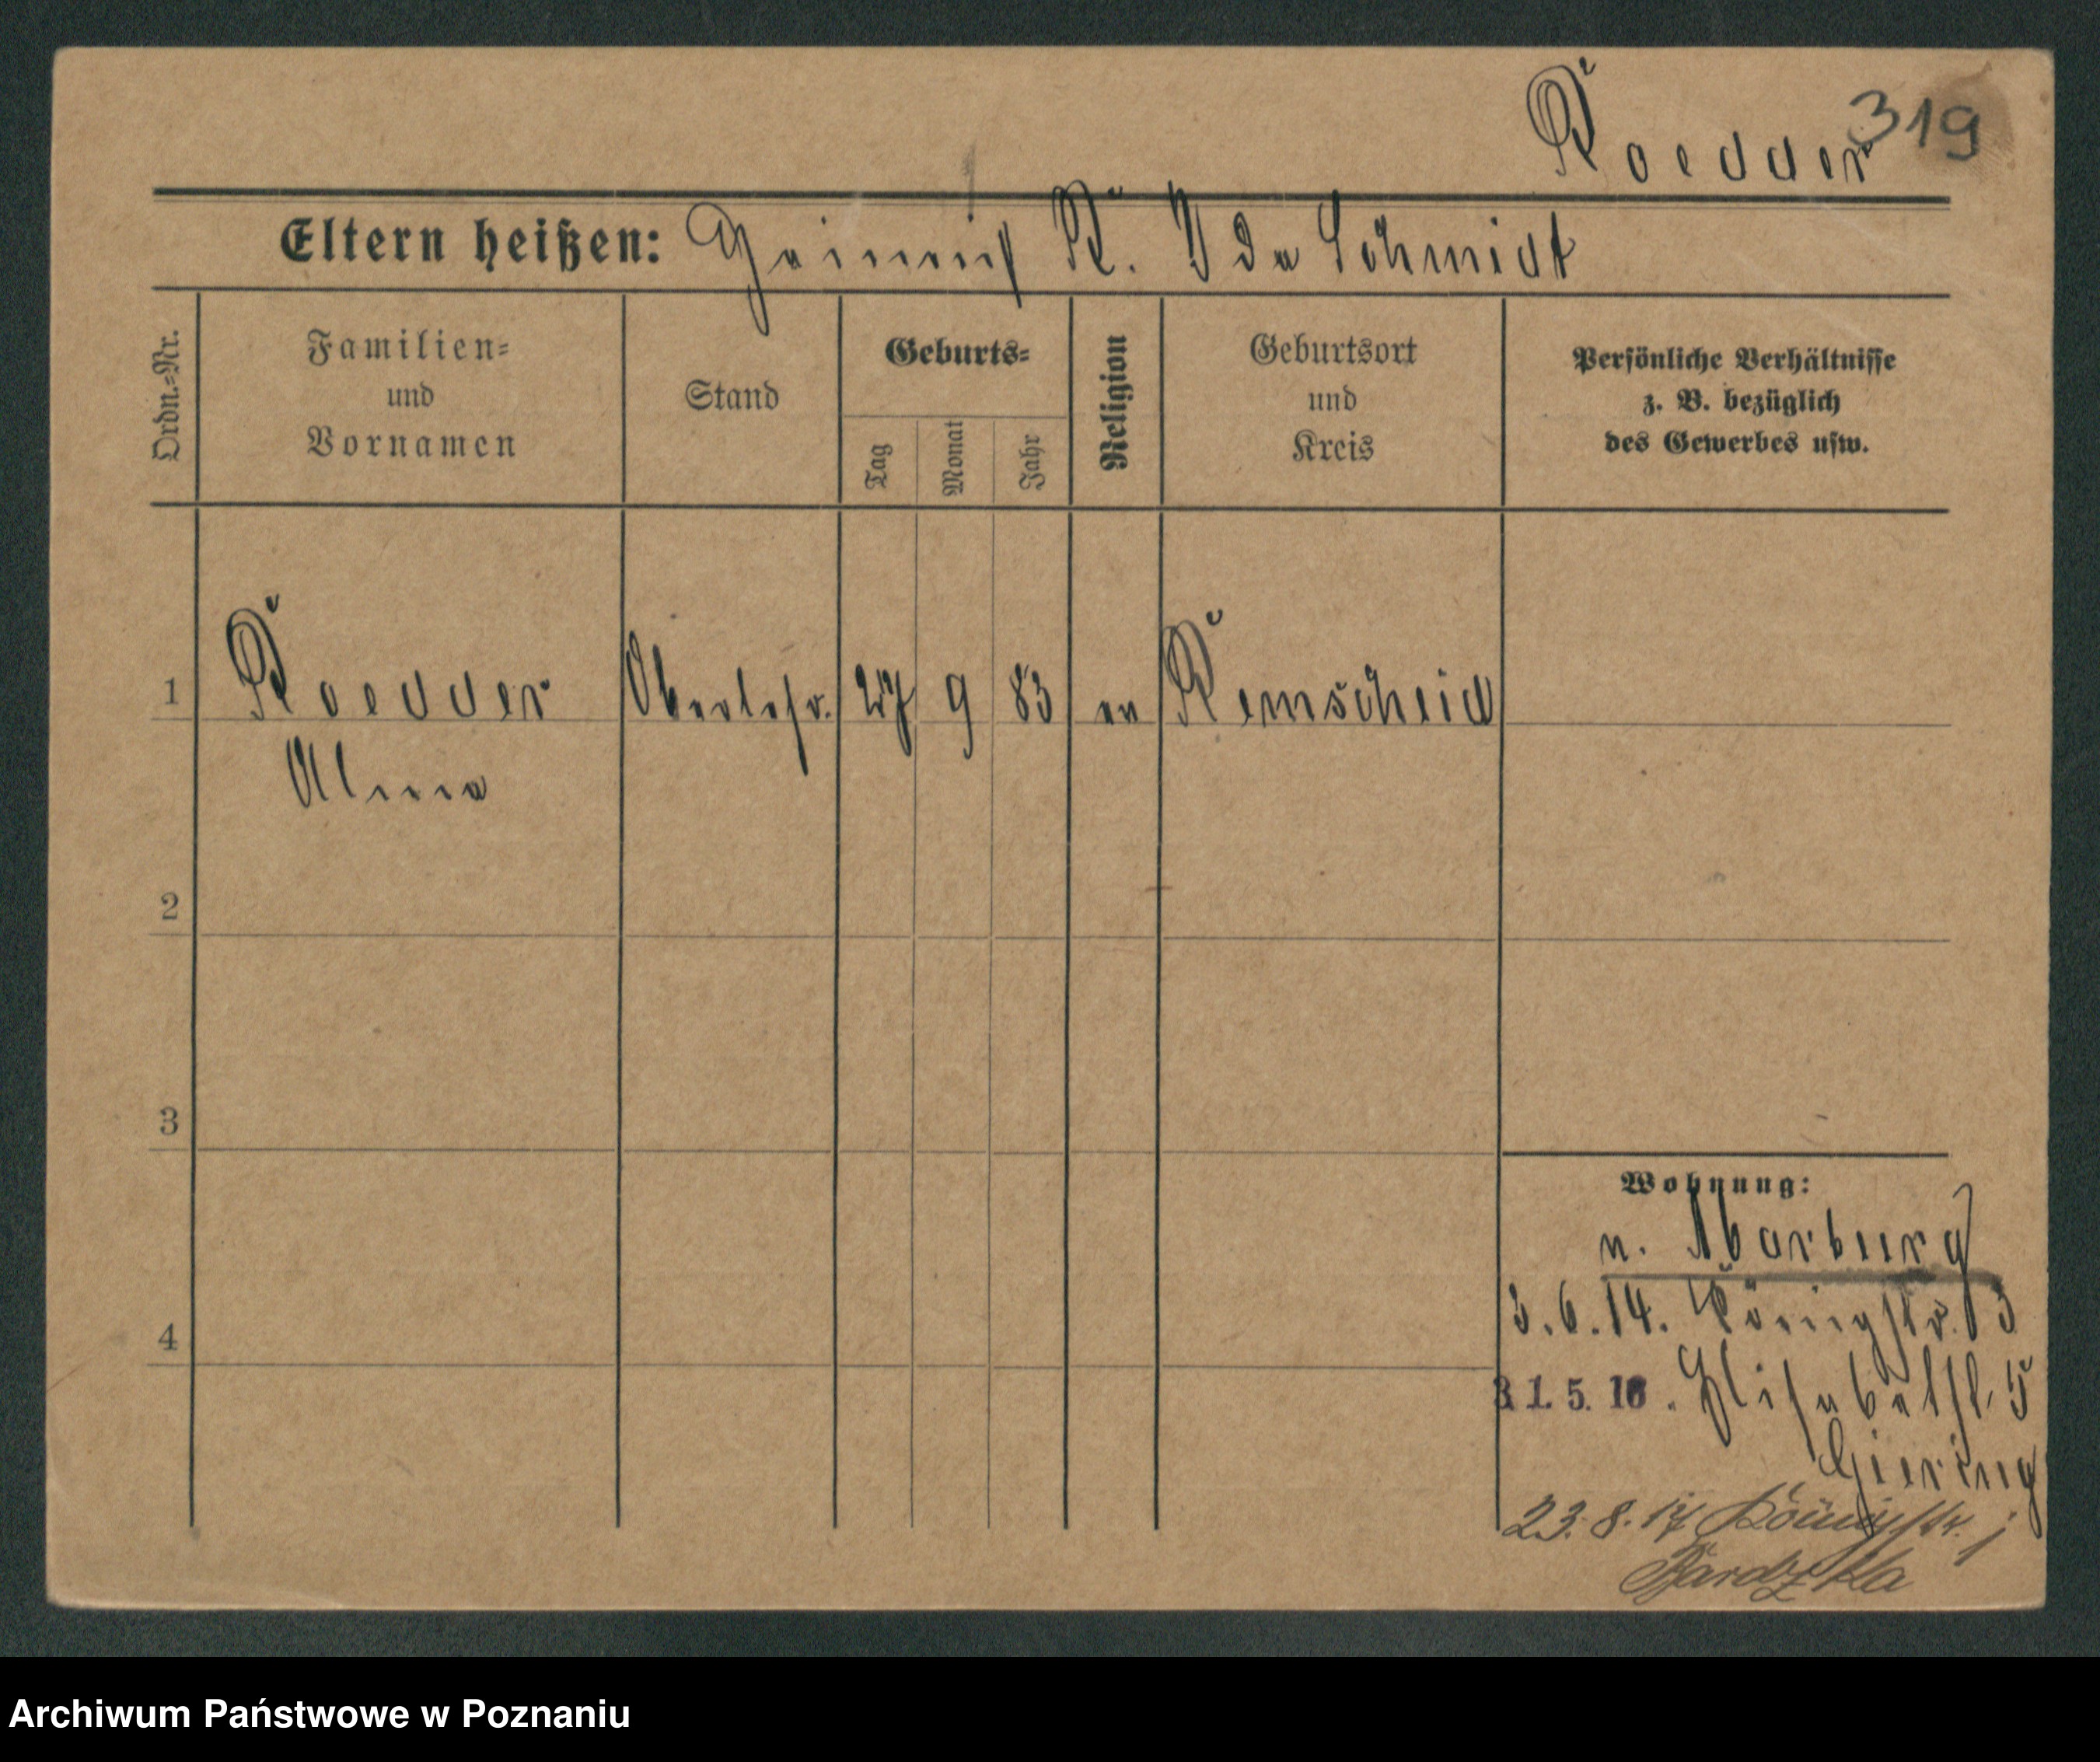 319
Roedder
Eltern heißen: Heinrich R. Ida Schmidt
Ordn.=Nr.
Familien= und Vornamen
Stand
Geburts=
Tag
Monat
Jahr
Religion
Geburtsort und Kreis
Persönliche Verhältnisse z. B. bezüglich des Gewerbes usw.
1 Roedder Oberlehr. 27 9 83 ev Remscheid
Alma
2
3
Wohnung:
n. Marburg
3.6.14. Königstr.
4
31.5.16. Elisabethst. 5
Giering
23.8.17 Königstr.
Archiwum Państwowe w Poznaniu